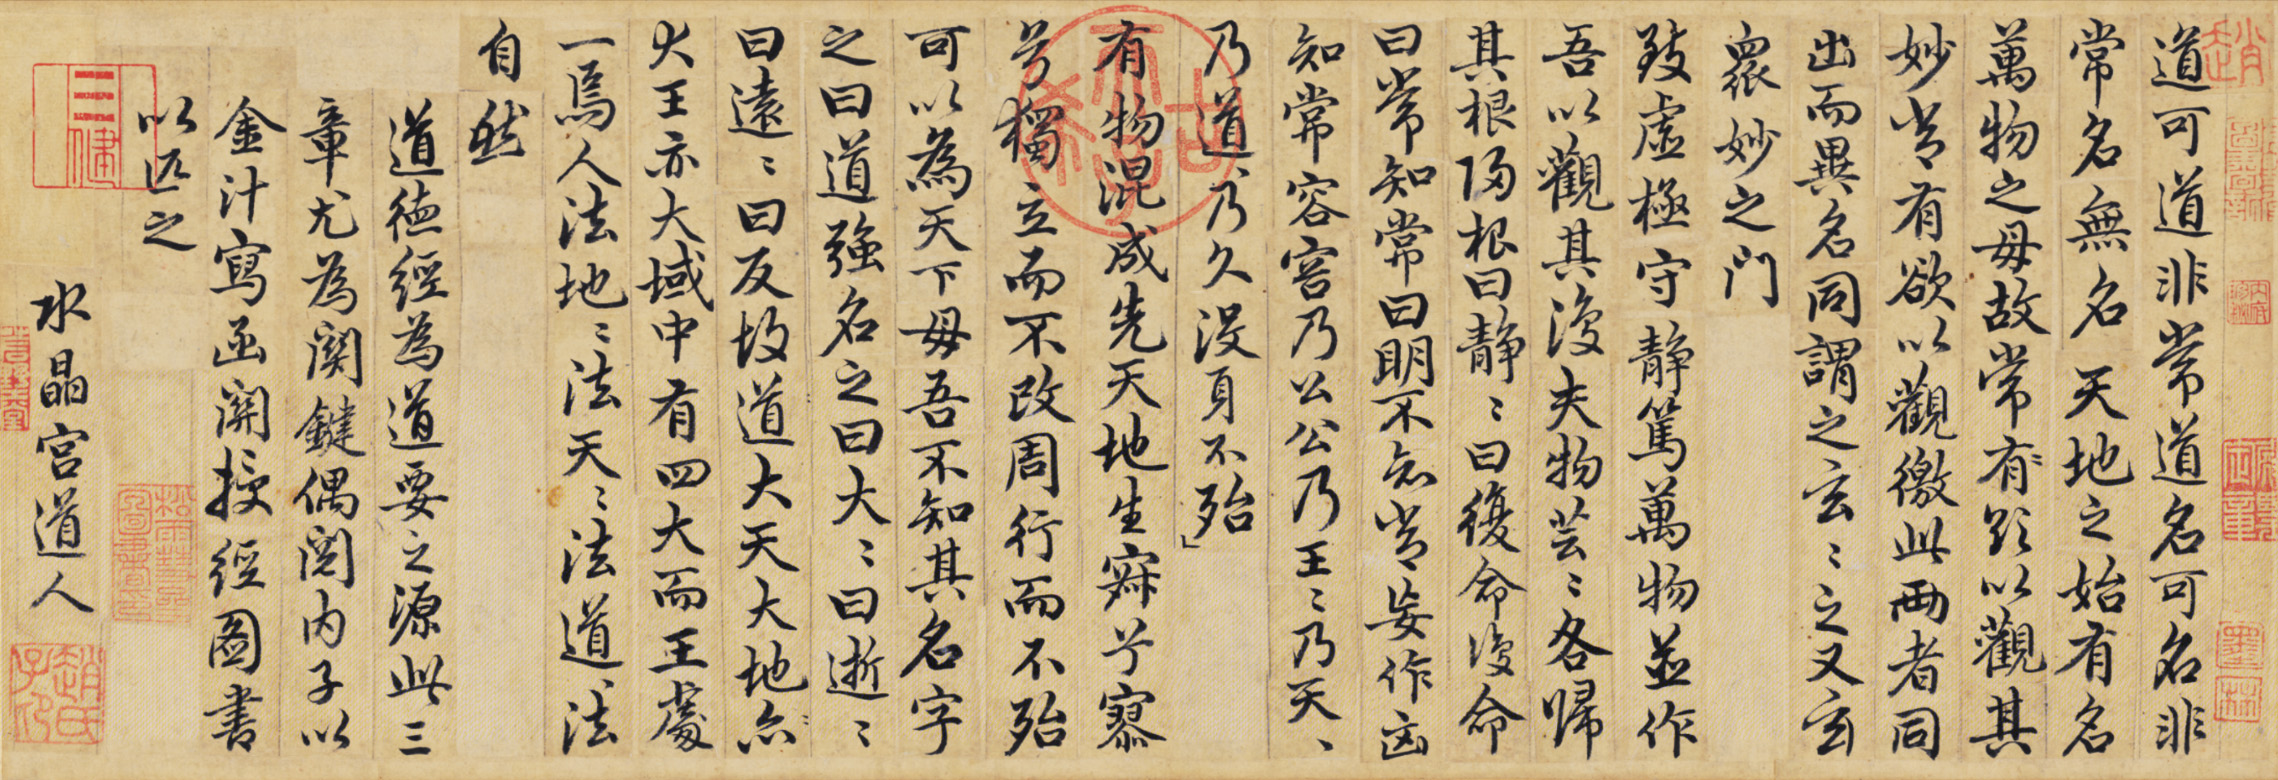 道可道非常道名可名非
常名無名天地之始有名
萬物之毋故常有欲以觀其
妙常有欲以觀徼此兩者同
出而異名同謂之玄〻之又玄
衆妙之門
致虛極守靜篤萬物並作
吾以觀其復夫物芸〻各歸
其根歸根曰靜〻曰復命復命
曰常知常曰明不知常妄作凶
知常容容乃公公乃王〻乃天〻
乃道〻乃久沒身不殆
有物混成先天地生寂兮寥
兮獨立而不改周行而不殆
可以為天下毋吾不知其名字
之曰道強名之曰大〻曰逝〻
曰遠〻曰反故道大天大地亦
大王亦大域中有四大而王處
一焉人法地〻法天〻法道〻法
自然
道德經為道要之源此三
章尤為關鍵偶閱內子以
金汁寫函關授經圖書
以匹之
水晶宮道人
趙氏子昂